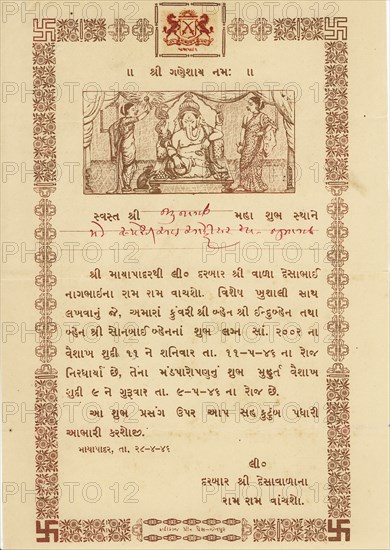 ॥ શ્રી ગણેશાય નમઃ ॥
સ્વસ્ત શ્રી મહા શુભ સ્થાને
શ્રી માયાપાદરથી લી૦ દરબાર શ્રી વાળા દેસાભાઈ
નાગભાઈના રામ રામ વાચશો. વિશેષ ખુશાલી સાથ
લખવાનું જે, અમારાં કુંવરી શ્રી બ્હેન શ્રી ઈન્દુબ્હેન તથા
બ્હેન શ્રી સોનબાઈ બ્હેનનાં શુભ લગ્ન સાં. ૨૦૦૨ ના
વૈશાખ શુદી ૧૧ ને શનિવાર તા. ૧૧-૫-૪૬ ના રોજ
નિરધાર્યા છે, તેના મંડપારોપણનું શુભ મુહૂર્ત વૈશાખ
શુદી ૯ ને ગુરૂવાર તા. ૯-૫-૪૬ ના રોજ છે.
આ શુભ પ્રસંગ ઉપર આપ સહ કુટુંબ પધારી
આભારી કરશોજી.
માયાપાદર, તા. ૨૮-૪-૪૬
લી૦
દરબાર શ્રી દેસાવાળાના
રામ રામ વાંચશો.